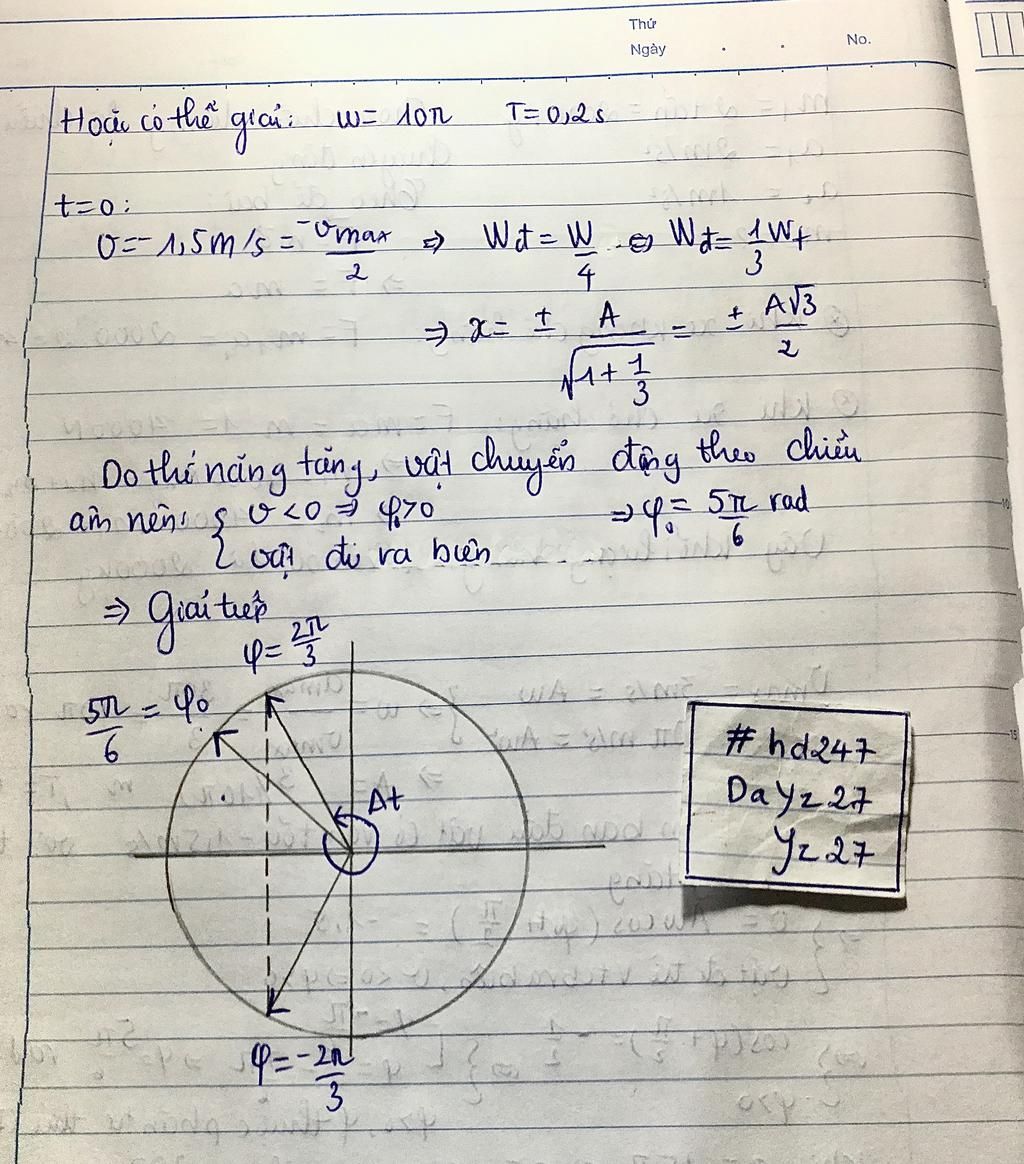 Thứ
Ngày . . No.
Hoặc có thể giải: ω = 10π T = 0,2s
t=0:
v = -1,5m/s = -vmax/2 ⇒ Wđ = W/4 ⇔ Wđ = 1/3 Wt
⇒ x = ± A/√(1 + 1/3) = ± A√3/2
Do thế năng tăng, vật chuyển động theo chiều
âm nên: { v < 0 ⇒ φ₀ > 0 ⇒ φ₀ = 5π/6 rad
vật đi ra biên
⇒ Giải tiếp
φ = 2π/3
5π/6 = φ₀
Δt
φ = -2π/3
#hd247
Dayz27
yz27